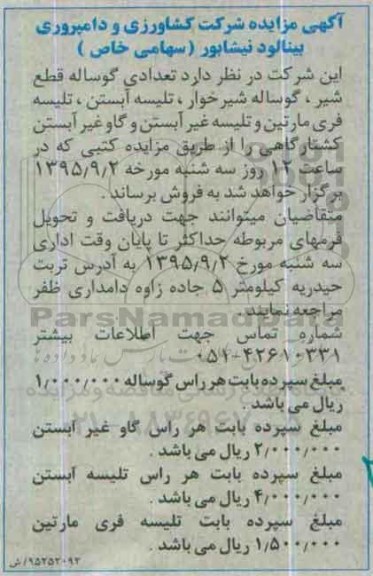 آگهی مزایده شرکت کشاورزی و دامپروری
بینالود نیشابور ( سهامی خاص )
این شرکت در نظر دارد تعدادی گوساله قطع
شیر ، گوساله شیر خوار ، تلیسه آبستن ، تلیسه
فری مارتین و تلیسه غیر آبستن و گاو غیر آبستن
کشتارگاهی را از طریق مزایده کتبی که در
ساعت ۱۲ روز سه شنبه مورخه ۱۳۹۵/۹/۲
برگزار خواهد شد به فروش برساند .
متقاضیان میتوانند جهت دریافت و تحویل
فرمهای مربوطه حداکثر تا پایان وقت اداری
سه شنبه مورخ ۱۳۹۵/۹/۲ به آدرس تربت
حیدریه کیلومتر ۵ جاده زاوه دامداری ظفر
مراجعه نمایند .
شماره تماس جهت اطلاعات بیشتر
۰۵۱-۴۲۶۱۰۳۳۱
مبلغ سپرده بابت هر راس گوساله ۱/۰۰۰/۰۰۰
ریال می باشد .
مبلغ سپرده بابت هر راس گاو غیر آبستن
۲/۰۰۰/۰۰۰ ریال می باشد .
مبلغ سپرده بابت هر راس تلیسه آبستن
۴/۰۰۰/۰۰۰ ریال می باشد .
مبلغ سپرده بابت تلیسه فری مارتین
۱/۵۰۰/۰۰۰ ریال می باشد .
۹۵۲۵۲۰۹۲/ش
ParsNamadData